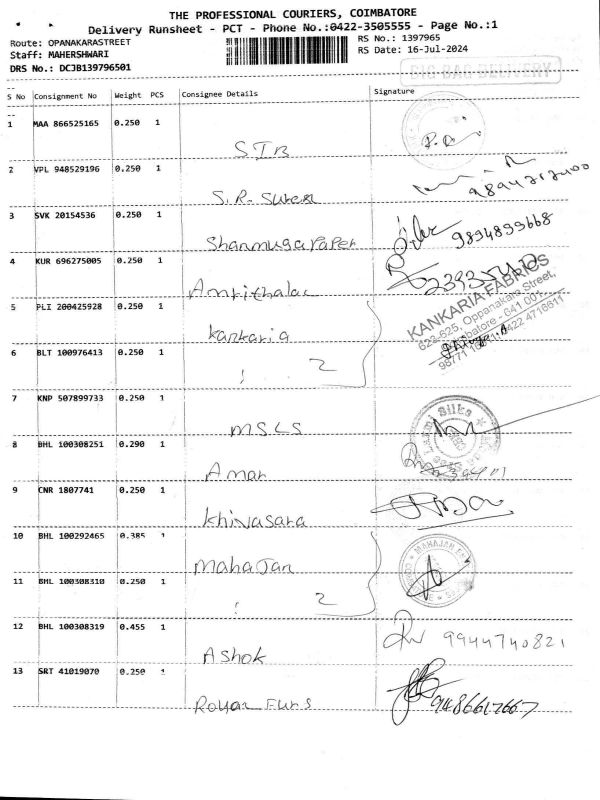 THE PROFESSIONAL COURIERS, COIMBATORE
Delivery Runsheet - PCT - Phone No.:0422-3505555 - Page No.:1
Route: OPANAKARASTREET RS No.: 1397965
Staff: MAHERSHWARI RS Date: 16-Jul-2024
DRS No.: DCJB139796501
S No Consignment No Weight PCS Consignee Details Signature
1 MAA 866525165 0.250 1
STB
2 VPL 948529196 0.250 1
S.R. Suresh
3 SVK 20154536 0.250 1
Shanmuga Paper 9894899668
4 KUR 696275005 0.250 1
Amrithalac
KANKARIA FABRICS
622-625, Oppanakara Street,
Coimbatore - 641 001.
5 PLI 200425928 0.250 1
Kankaria
6 BLT 100976413 0.250 1
! 2
7 KNP 507899733 0.250 1
MSLS
8 BHL 100308251 0.290 1
Aman
9 CNR 1807741 0.250 1
Khivasara
10 BHL 100292465 0.385 1
Mahajan
11 BHL 100308310 0.250 1
! 2
12 BHL 100308319 0.455 1
Ashok 9944740821
13 SRT 41019070 0.250 1
Royal Furs 9486617667